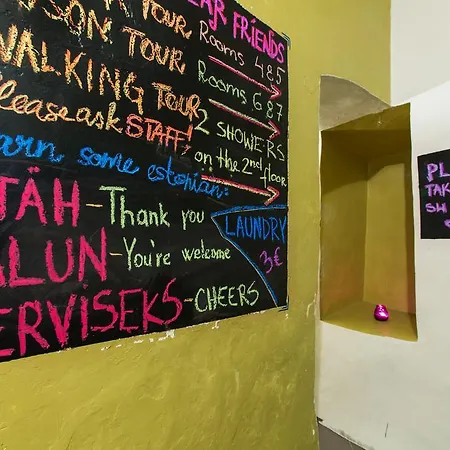 EAR FRIENDS
TOUR
SON TOUR
WALKING TOUR
Please ask STAFF!
Rooms 4&5
Rooms 6&7
2 SHOWERS
on the 2nd floor
earn some estonian:
TÄH - Thank you
ALUN - You're welcome
ERVISEKS - CHEERS
LAUNDRY
3€
PL
TAK
SH